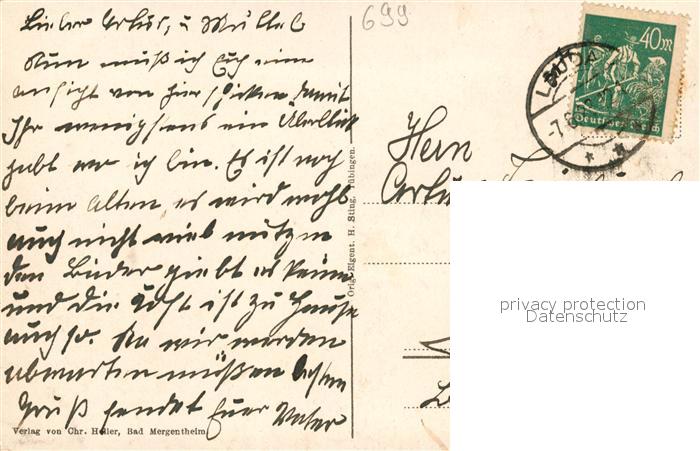 Lieber Artur, u Muttel
Nun muß ich Euch eine
ansicht von hier schicken damit
Ihr wenigstens ein Überblick
habt wo ich bin. Es ist noch
beim Alten es wird wohl
auch nicht viel nutzen
den Bäder giebt es keine
und die Kost ist zu Hause
auch so. Na wir werden
abwarten müßen besten
Gruß sendet Euer Vater
Verlag von Chr. Heller, Bad Mergentheim.
Orig.-Eigent. H. Sting, Tübingen.
699
40 m
Deutsches Reich
LAUDA
Herrn
Artur
privacy protection
Datenschutz